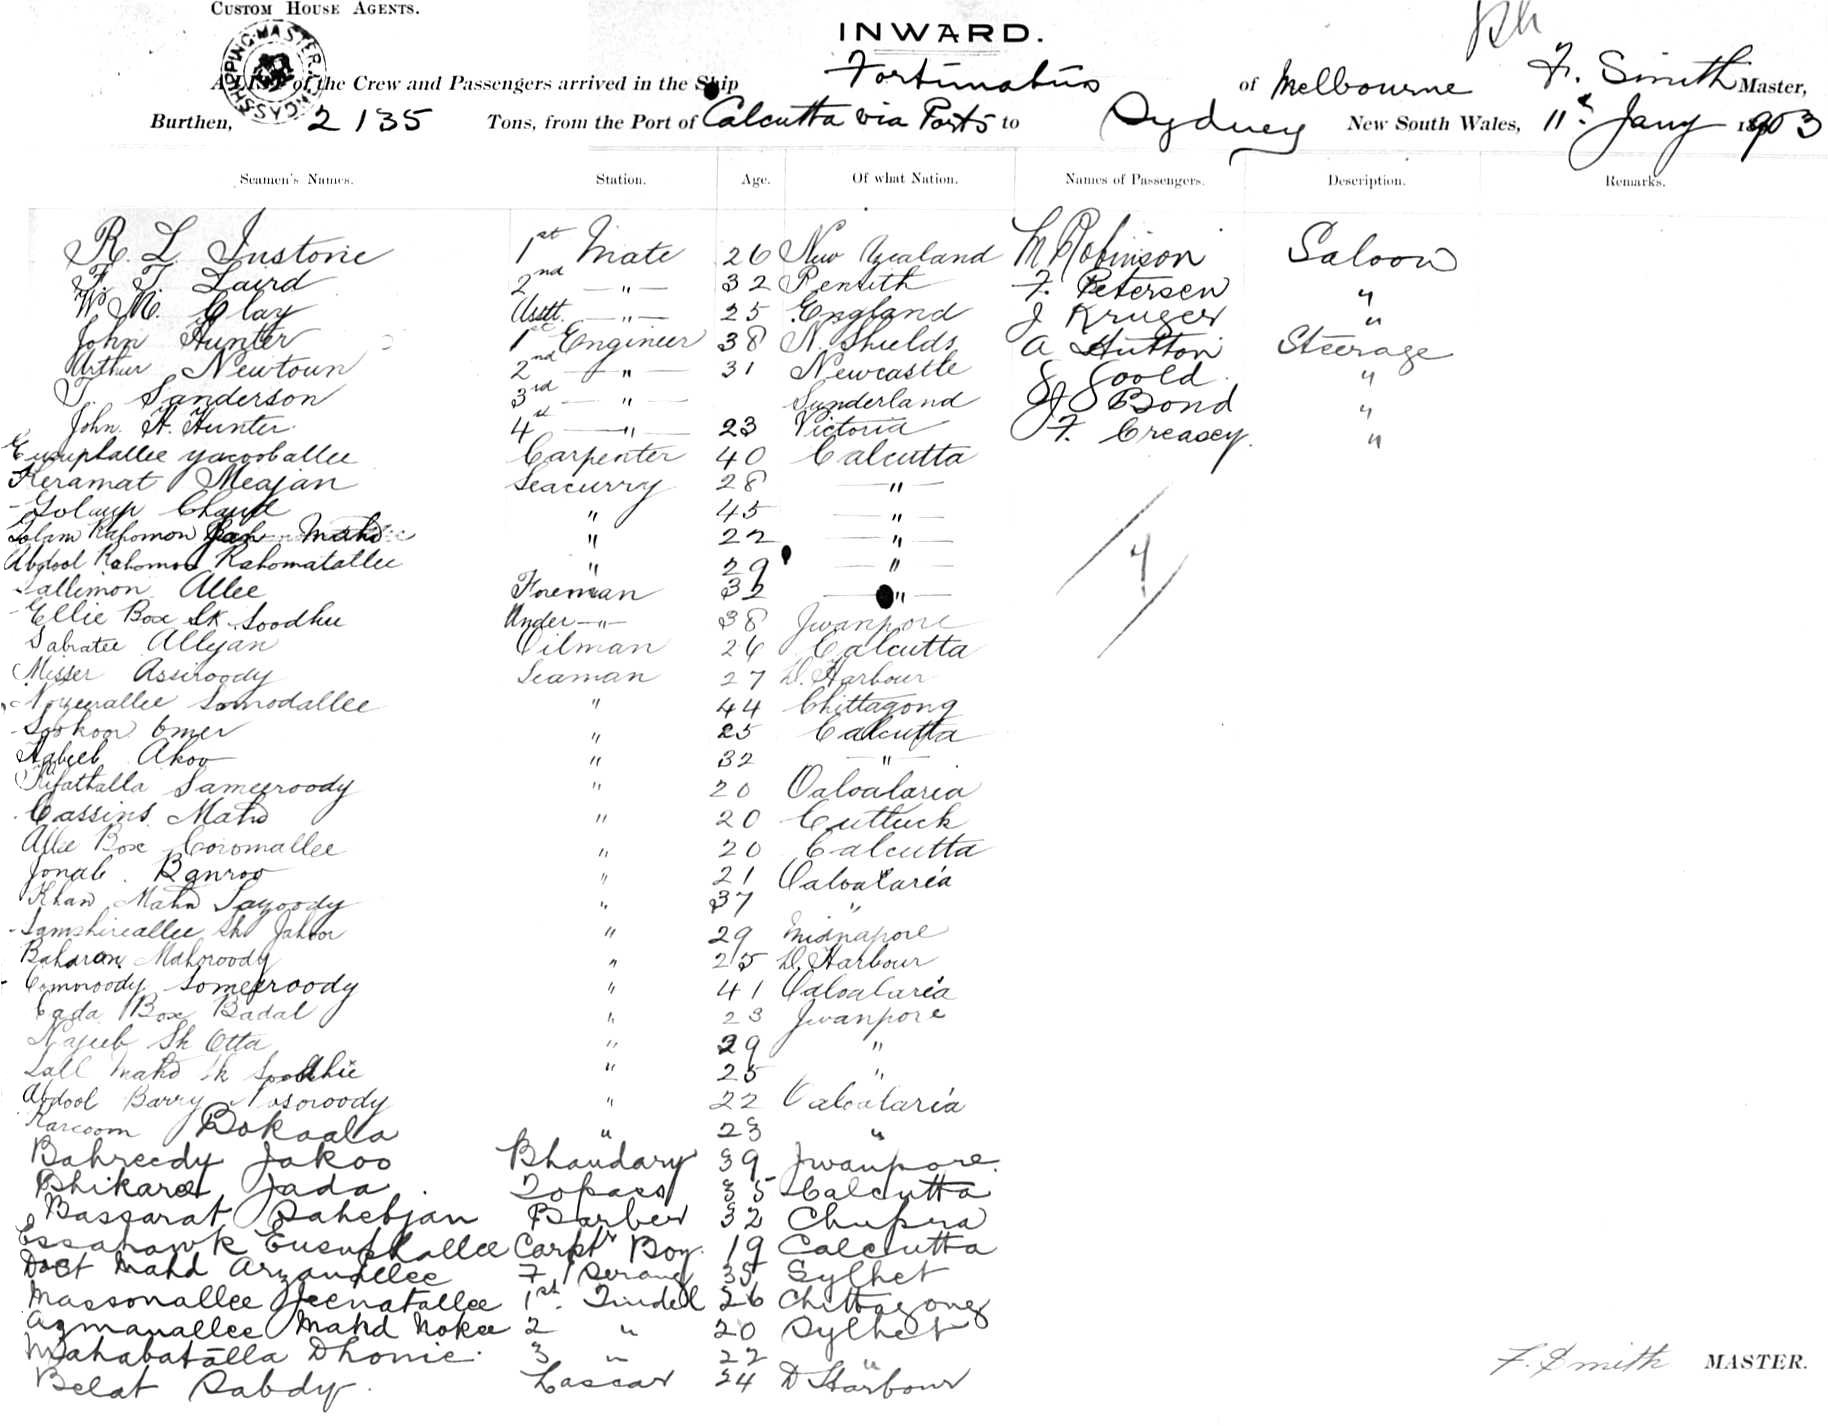 CUSTOM HOUSE AGENTS.
INWARD.
A LIST of the Crew and Passengers arrived in the Ship Fortunatus of Melbourne F. Smith Master,
Burthen, 2135 Tons, from the Port of Calcutta via Ports to Sydney New South Wales, 11th Jany 1903
Seamen's Names. Station. Age. Of what Nation. Names of Passengers. Description. Remarks.
R. L. 1st Mate 26 New Zealand M Robinson Saloon
F. T. Laird 2nd — " — 32 Penrith F. Petersen "
W. M. Clay Asstt. — " — 25 England J Kruger "
John Hunter 1st Engineer 38 N. Shields A Hutton Steerage
Arthur Newtoun 2nd — " — 31 Newcastle Goold "
T. Sanderson 3rd — " — Sunderland Bond "
John H. Hunter 4 — " — 23 Victoria F. Creasey "
Eusuphallee Yacooballee Carpenter 40 Calcutta
Keramat Meajan Seacurry 28 — " —
Golaup Chand " 45 — " —
Golam Rahomon " 22 — " —
Abdool Rahomatallee " 29 — " —
Sallimon Allee Foreman 32 — " —
Ellie Box Sk Soodhu Under — " — 38 Jwanpore
Sabratee Allyan Oilman 26 Calcutta
Misser Assiroody Seaman 27 D. Harbour
Somodallee " 44 Chittagong
Sookoor Omer " 25 Calcutta
Habeeb Akoo " 32 — " —
Rifathalla Sameeroody " 20
Cassins Mahd " 20 Cuttuck
Allie Box Coromallee " 20 Calcutta
Jonab Banroo " 21
Khan Mahd " 37 "
Samshireallee Sk Jahoor " 29 Midnapore
Baharan Mahoroody " 25 D. Harbour
Comoroody Someeroody " 41
Cada Box Badal " 23 Jwanpore
Najeeb Sk Otta " 29 "
Lall Mahd Sk Soodhie " 25 "
Abdool Barry " 22
Karcoom Bokaala " 23 "
Bahreedy Jakoo Bhandary 39 Jwanpore
Bhikaree Jada Topass 35 Calcutta
Bassarat Sahebjan Barber 32 Chupra
Essahawk Eusuphallee Carptr Boy. 19 Calcutta
Dost Mahd Arzanallee F / Serang 35 Sylhet
Massonallee Jeenatallee 1st. Tindel 26 Chittagong
Azmanallee Mahd Nokee 2 " 20 Sylhet
Mahabatalla Dhonie 3 " 22 "
Belat Sabdy. Lascar 24 D Harbour
F. Smith MASTER.